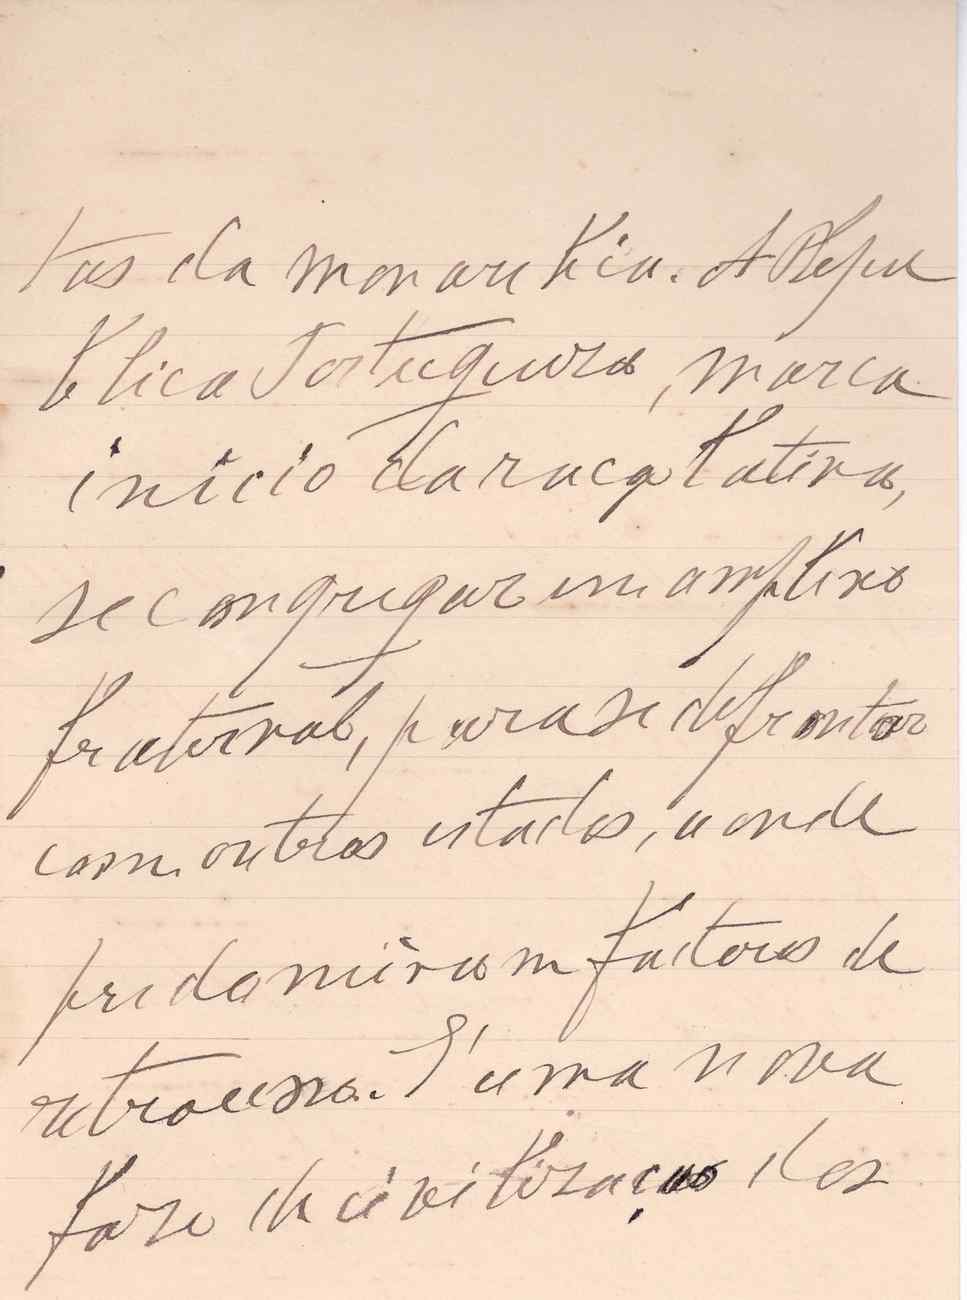 tas da monarchia. A Repu
blica Portugueza, marca
inicio da raça latina,
se congregar um amplexo
fraternal, para se defrontar
com outros estados, aonde
predominam factores de
retrocesso. E' uma nova
fase de civilização dos